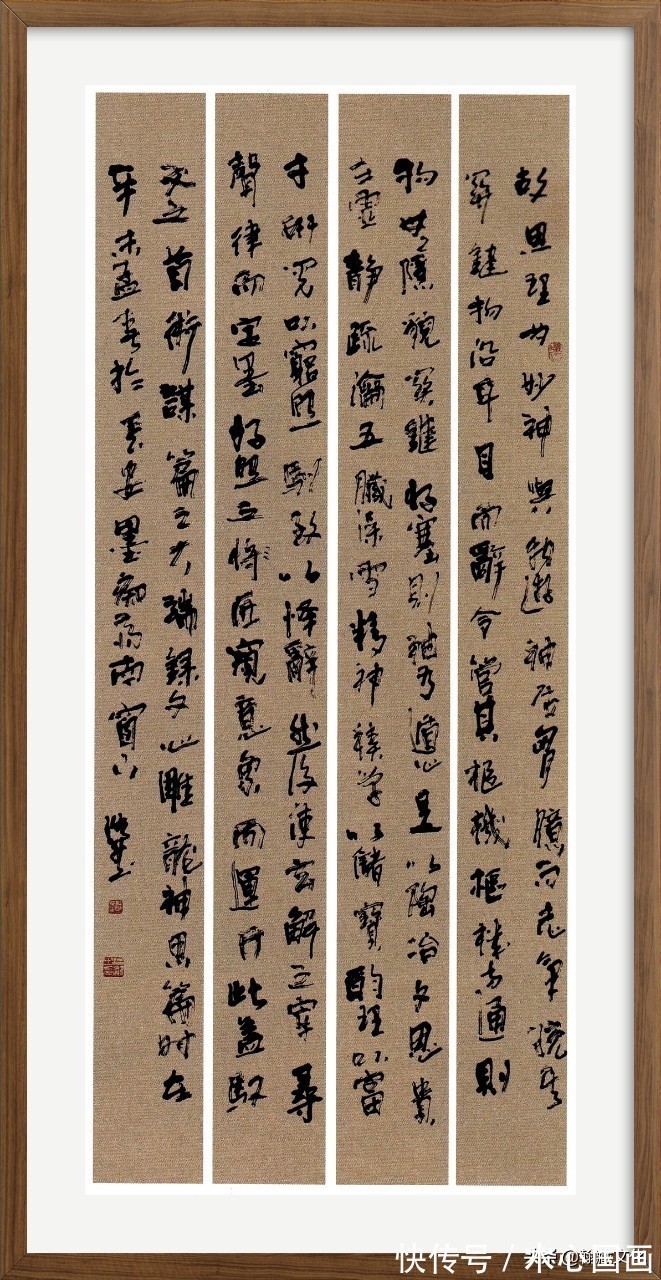 故思理為妙神與物遊神居胸臆而志氣統其
關鍵物沿耳目而辭令管其樞機樞機方通則
物無隱貌關鍵將塞則神有遁心是以陶冶文思貴
在虛靜疏瀹五臟澡雪精神積學以儲寶酌理以富
才研閱以窮照馴致以懌辭然後使玄解之宰尋
聲律而定墨獨照之將匠窺意象而運斤此蓋馭
文之首術謀篇之大端錄文心雕龍神思篇時在
辛未孟春於長安墨痴齋南窗下
快传号 / 木心国画